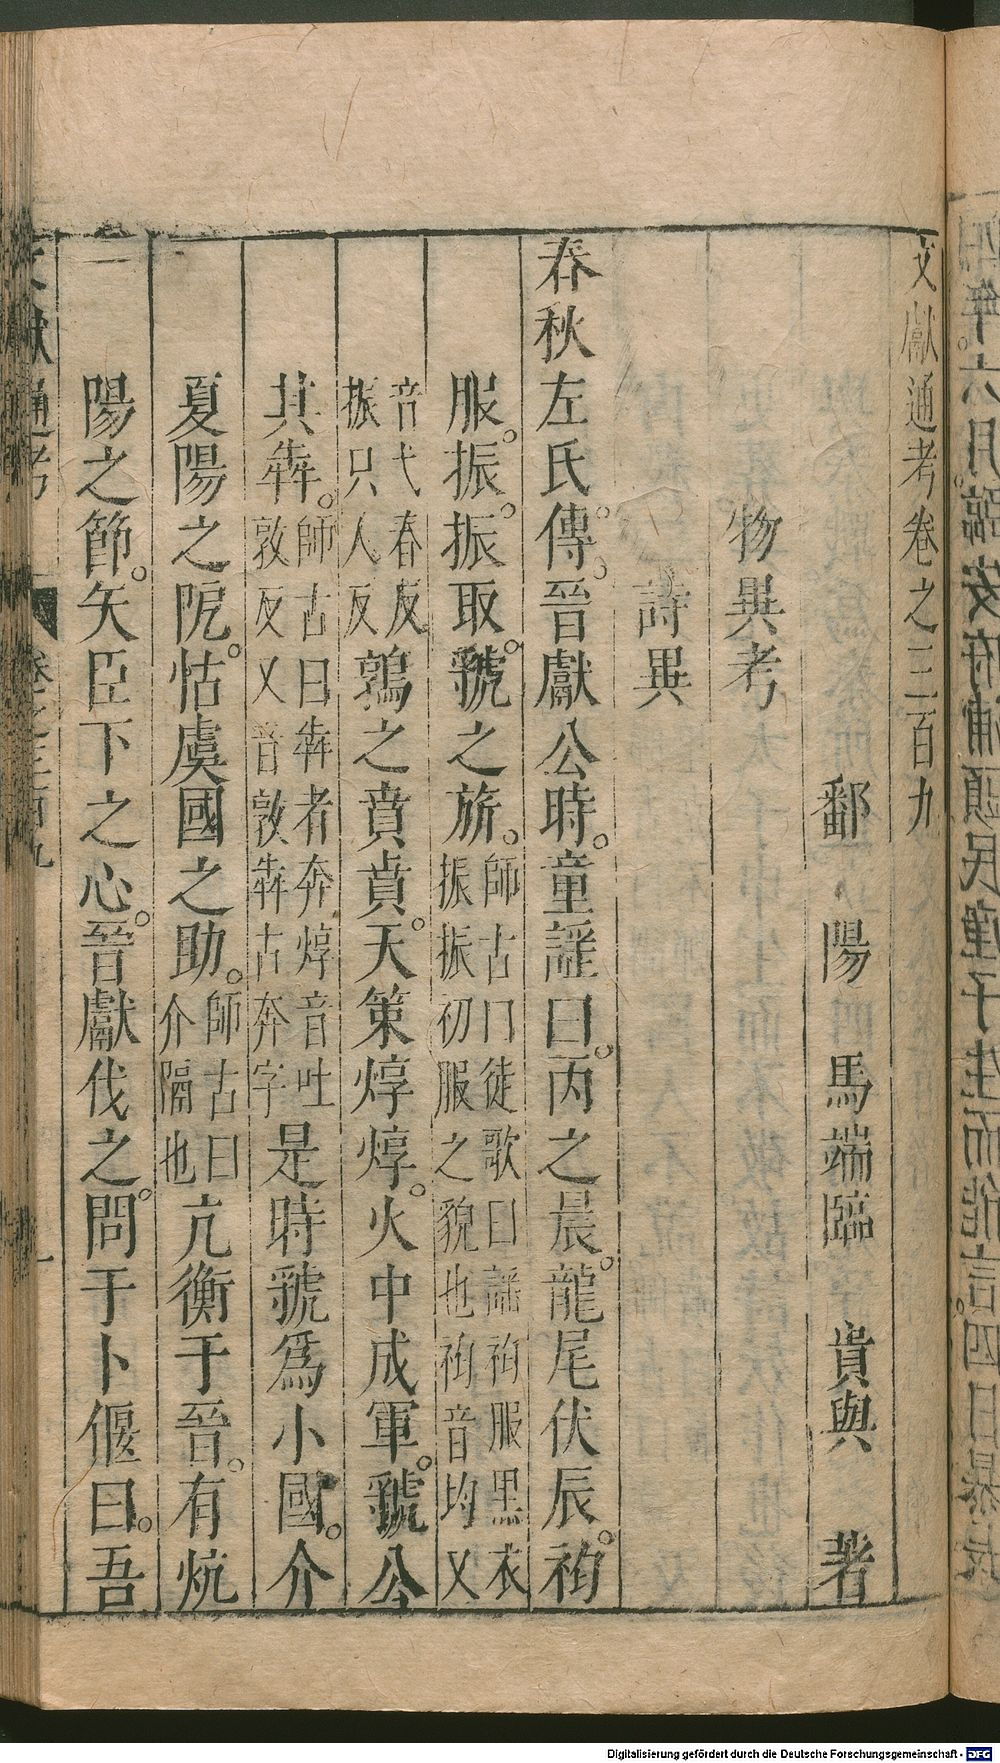 文獻通考卷之三百九
鄱陽馬端臨貴與著
物異考
詩異
春秋左氏傳。晉獻公時。童謡曰。丙之晨。龍尾伏辰。袀
服。振振。取虢之旂。師古曰徒歌曰謡袀服黒衣振振初服之貌也袀音均又
音弋春反振只人反鶉之賁賁。天策焞焞。火中成軍。虢公
其犇。師古曰犇者奔焞音吐敦反又音敦犇古奔字是時虢爲小國。介
夏陽之阸。怙虞國之助。師古曰介隔也亢衡于晉。有炕
陽之節。矢臣下之心。晉獻伐之。問于卜偃曰。吾
文獻通考
卷之三百九
一
Digitalisierung gefördert durch die Deutsche Forschungsgemeinschaft - DFG